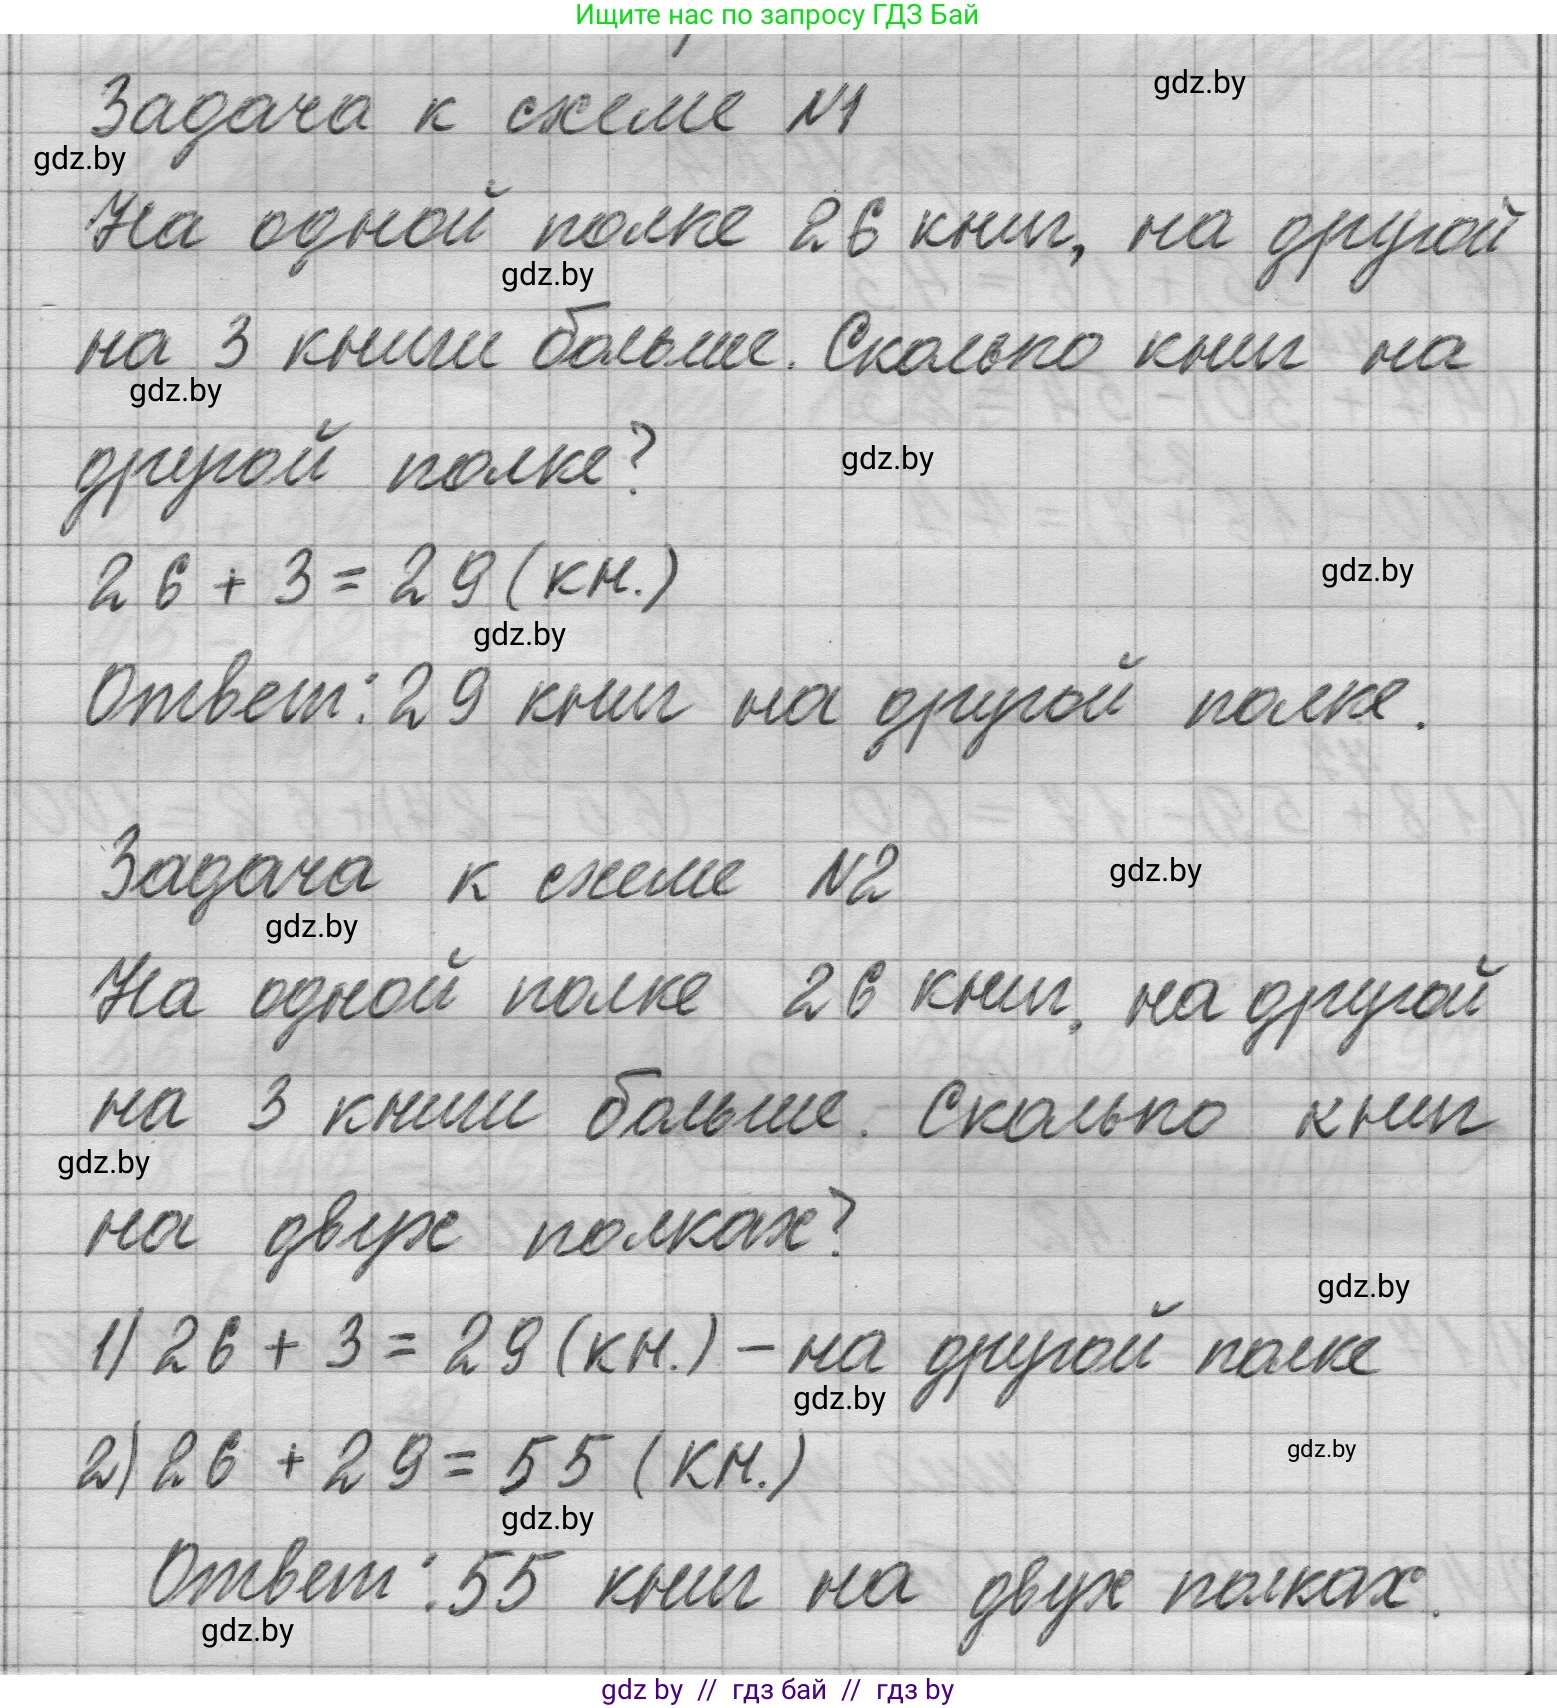 Ищите нас по запросу ГДЗ Бай
Задача к схеме №1
gdz.by
gdz.by
На одной полке 26 книг, на другой
gdz.by
на 3 книги больше. Сколько книг на
gdz.by
другой полке?
gdz.by
26 + 3 = 29 (кн.)
gdz.by
gdz.by
Ответ: 29 книг на другой полке.
Задача к схеме №2
gdz.by
gdz.by
На одной полке 26 книг, на другой
на 3 книги больше. Сколько книг
gdz.by
на двух полках?
gdz.by
1) 26 + 3 = 29 (кн.) – на другой полке
gdz.by
2) 26 + 29 = 55 (кн.)
gdz.by
gdz.by
Ответ: 55 книг на двух полках.
gdz.by
gdz by // гдз бай // гдз by